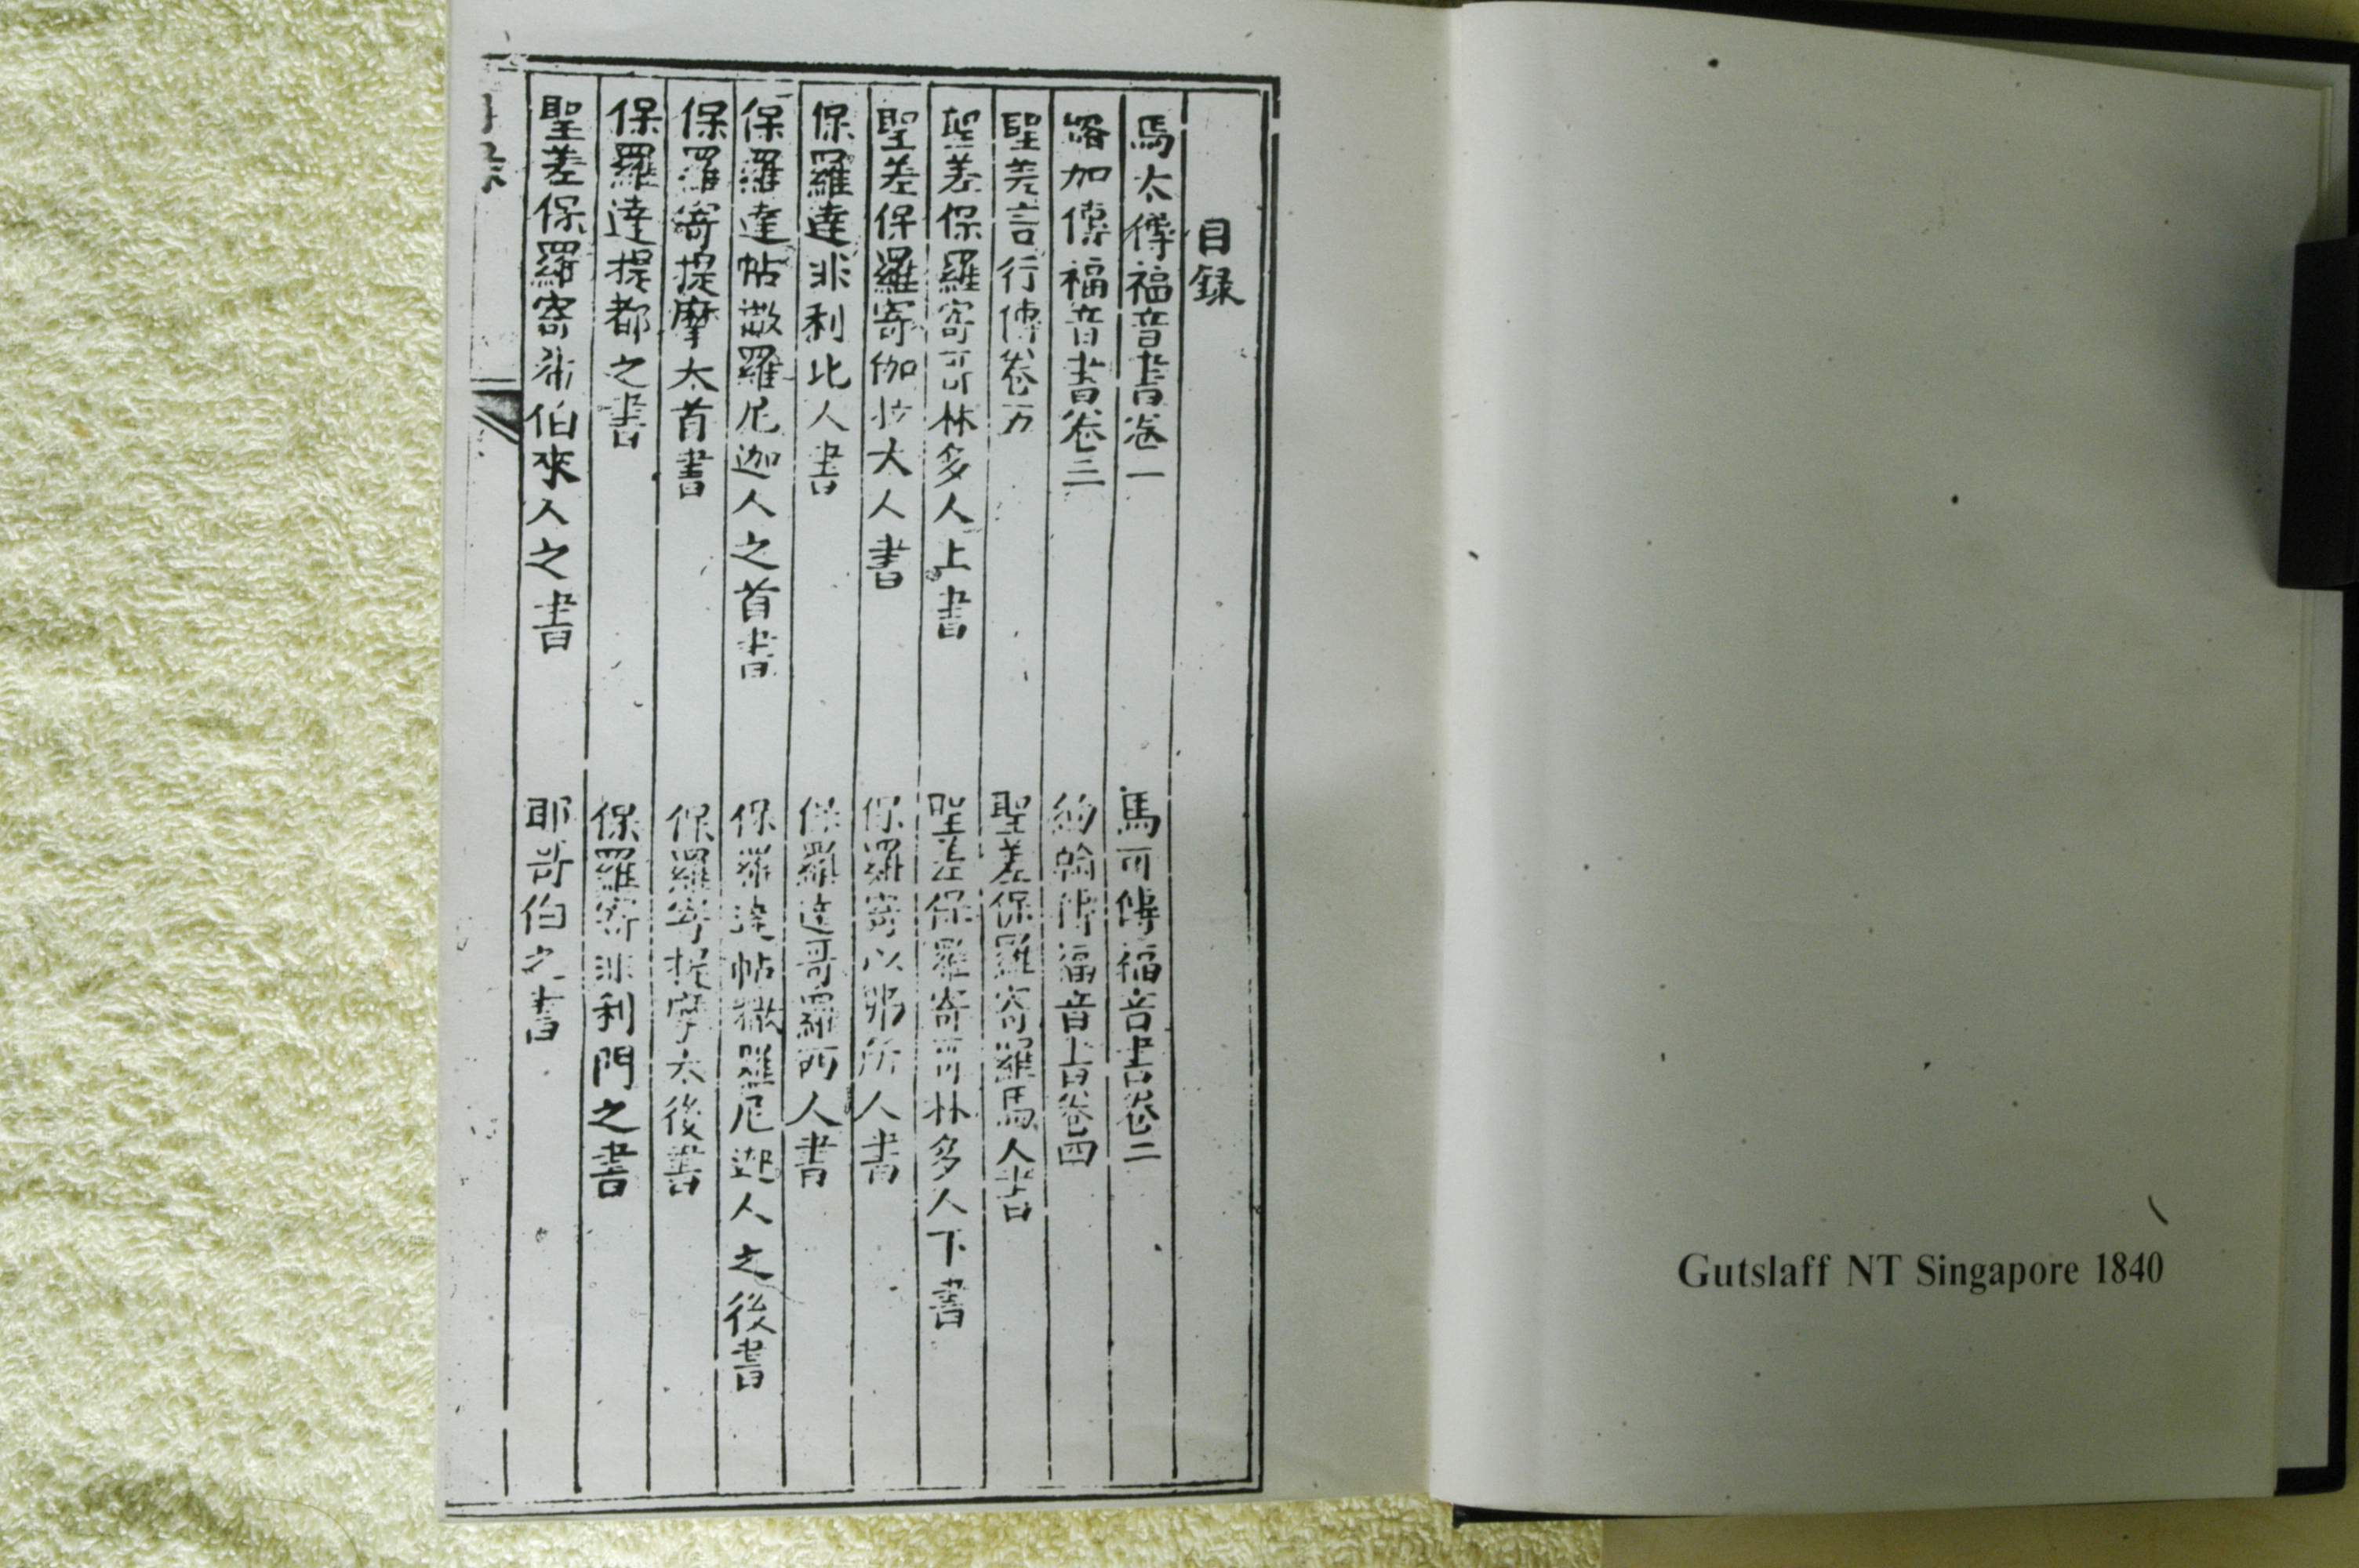 目錄
馬太傳福音書卷一
馬可傳福音書卷二
路加傳福音書卷三
約翰傳福音書卷四
聖差言行傳卷五
聖差保羅寄羅馬人書
聖差保羅寄可林多人上書
聖差保羅寄可林多人下書
聖差保羅寄伽拉太人書
保羅寄以弗所人書
保羅達非利比人書
保羅達哥羅西人書
保羅達帖撒羅尼迦人之首書
保羅達帖撒羅尼迦人之後書
保羅寄提摩太首書
保羅寄提摩太後書
保羅達提都之書
保羅寄非利門之書
聖差保羅寄希伯來人之書
耶哥伯之書
Gutslaff NT Singapore 1840